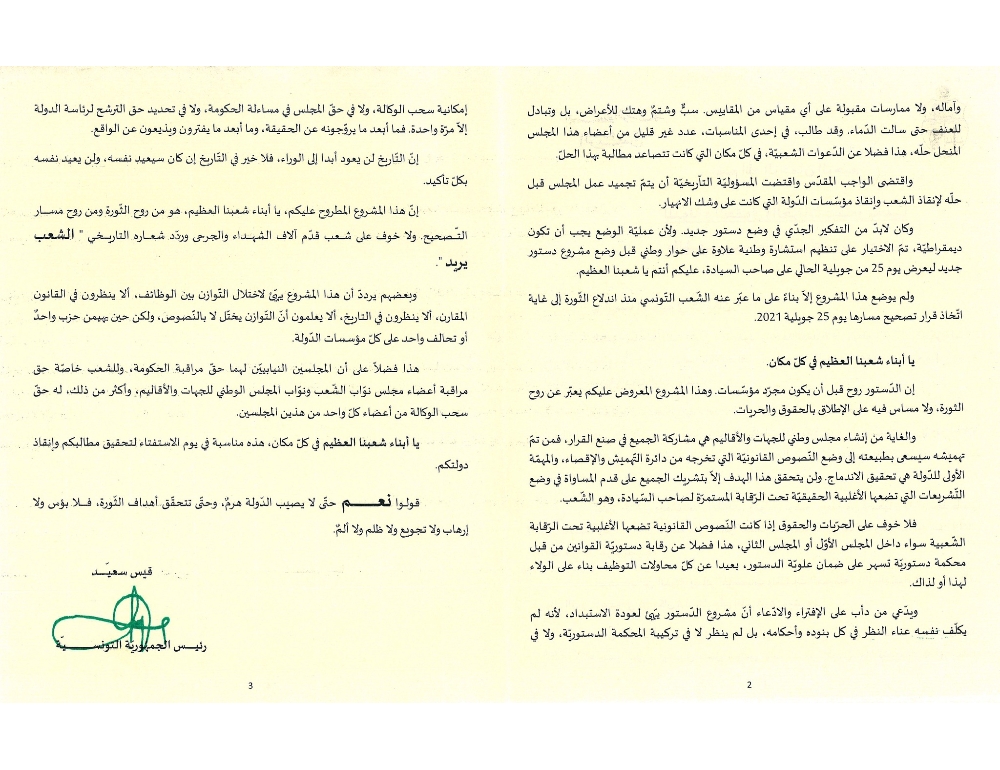 وآماله، ولا ممارسات مقبولة على أي مقياس من المقاييس. سبٌّ وشتمٌ وهتك للأعراض، بل وتبادل
للعنف حتى سالت الدّماء. وقد طالب، في إحدى المناسبات، عدد غير قليل من أعضاء هذا المجلس
المنحل حلّه، هذا فضلا عن الدّعوات الشعبيّة، في كلّ مكان التي كانت تتصاعد مطالبة بهذا الحلّ.
واقتضى الواجب المقدّس واقتضت المسؤوليّة التأريخيّة أن يتمّ تجميد عمل المجلس قبل
حلّه لإنقاذ الشعب وإنقاذ مؤسّسات الدّولة التي كانت على وشك الانهيار.
وكان لابدّ من التفكير الجدّي في وضع دستور جديد. ولأن عمليّة الوضع يجب أن تكون
ديمقراطيّة، تمّ الاختيار على تنظيم استشارة وطنية علاوة على حوار وطني قبل وضع مشروع دستور
جديد ليعرض يوم 25 من جويلية الحالي على صاحب السيادة، عليكم أنتم يا شعبنا العظيم.
ولم يوضع هذا المشروع إلاّ بناءً على ما عبّر عنه الشّعب التّونسي منذ اندلاع الثّورة إلى غاية
اتّخاذ قرار تصحيح مسارها يوم 25 جويلية 2021.
يا أبناء شعبنا العظيم في كلّ مكان.
إن الدّستور روح قبل أن يكون مجرّد مؤسّسات. وهذا المشروع المعروض عليكم يعبّر عن روح
الثورة، ولا مساس فيه على الإطلاق بالحقوق والحريات.
والغاية من إنشاء مجلس وطني للجهات والأقاليم هي مشاركة الجميع في صنع القرار، فمن تمّ
تهميشه سيسعى بطبيعته إلى وضع النّصوص القانونيّة التي تخرجه من دائرة التّهميش والإقصاء، والمهمّة
الأولى للدّولة هي تحقيق الاندماج. ولن يتحقق هذا الهدف إلاّ بتشريك الجميع على قدم المساواة في وضع
التّشريعات التي تضعها الأغلبية الحقيقيّة تحت الرّقابة المستمرّة لصاحب السّيادة، وهو الشّعب.
فلا خوف على الحرّيات والحقوق إذا كانت النّصوص القانونية تضعها الأغلبية تحت الرّقابة
الشّعبية سواء داخل المجلس الأوّل أو المجلس الثاني، هذا فضلا عن رقابة دستوريّة القوانين من قبل
محكمة دستوريّة تسهر على ضمان علويّة الدستور، بعيدا عن كلّ محاولات التوظيف بناء على الولاء
لهذا أو لذاك.
ويدّعي من دأب على الإفتراء والادّعاء أنّ مشروع الدّستور يهيّئ لعودة الاستبداد، لأنه لم
يكلّف نفسه عناء النظر في كل بنوده وأحكامه، بل لم ينظر لا في تركيبة المحكمة الدستوريّة، ولا في
2
إمكانية سحب الوكالة، ولا في حقّ المجلس في مساءلة الحكومة، ولا في تحديد حق الترشح لرئاسة الدولة
إلاّ مرّة واحدة. فما أبعد ما يروّجونه عن الحقيقة، وما أبعد ما يفترون ويذيعون عن الواقع.
إنّ التّاريخ لن يعود أبدا إلى الوراء، فلا خير في التّاريخ إن كان سيعيد نفسه، ولن يعيد نفسه
بكلّ تأكيد.
إنّ هذا المشروع المطروح عليكم، يا أبناء شعبنا العظيم، هو من روح الثّورة ومن روح مسار
التّصحيح. ولا خوف على شعب قدّم آلاف الشهداء والجرحى وردّد شعاره التاريخي " الشعب
يريد ".
وبعضهم يردّد أن هذا المشروع يهيّئ لاختلال التّوازن بين الوظائف، ألا ينظرون في القانون
المقارن، ألا ينظرون في التاريخ، ألا يعلمون أنّ التّوازن يختلّ لا بالنّصوص، ولكن حين يهيمن حزب واحدٌ
أو تحالف واحد على كلّ مؤسسات الدّولة.
هذا فضلاً على أن المجلسين النيابيّين لهما حقّ مراقبة الحكومة، وللشعب خاصّة حق
مراقبة أعضاء مجلس نوّاب الشّعب ونوّاب المجلس الوطني للجهات والأقاليم، وأكثر من ذلك، له حقّ
سحب الوكالة من أعضاء كلّ واحد من هذين المجلسين.
يا أبناء شعبنا العظيم في كلّ مكان، هذه مناسبة في يوم الاستفتاء لتحقيق مطالبكم وإنقاذ
دولتكم.
قولوا نعـــم حتّى لا يصيب الدّولة هرمٌ، وحتّى تتحقّق أهداف الثّورة، فلا بؤس ولا
إرهاب ولا تجويع ولا ظلم ولا ألمٌ.
قيس سعيّـد
رئيـس الجمهوريّة التونسـيـة
3